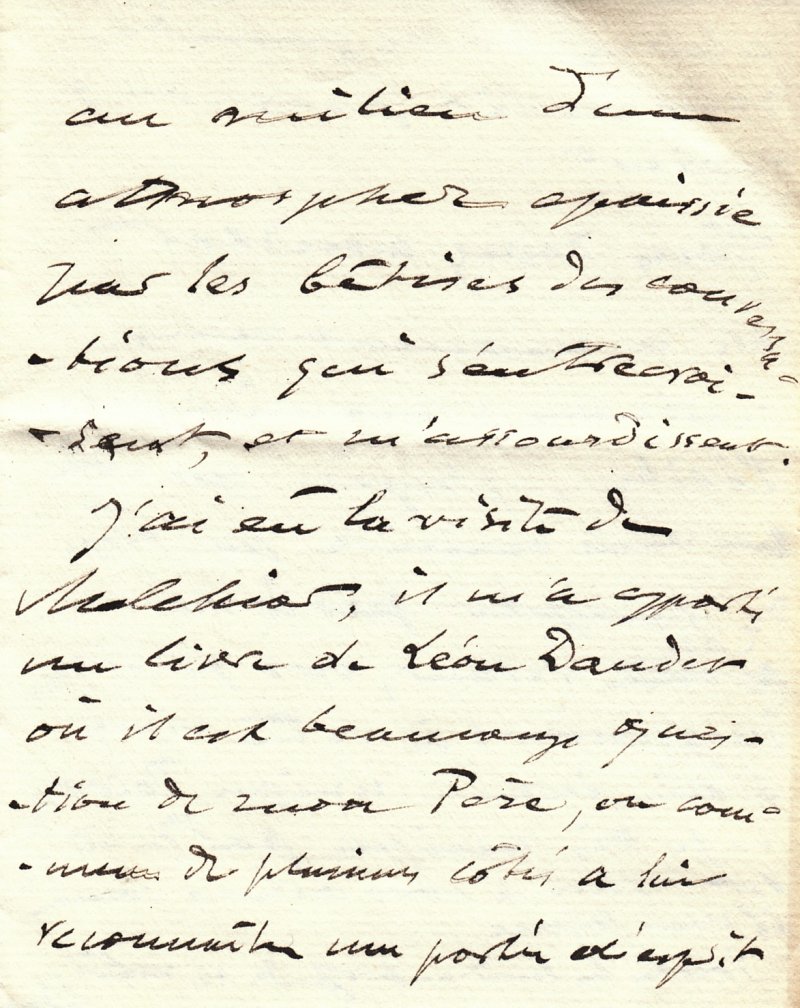 au milieu d'une
atmosphère epaissie
par les bêtises des conversa-
-tions qui s'entrecroi-
-sent, et m'assourdissent.
J'ai eû la visite de
Melchior, il m'a apporté
un livre de Léon Daudet
où il est beaucoup ques-
-tion de mon Père, on com-
-mence de plusieurs côtés a lui
reconnaître une portée d'esprit